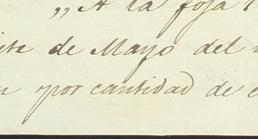 „ A la foja
de Mayo del
por cantidad de